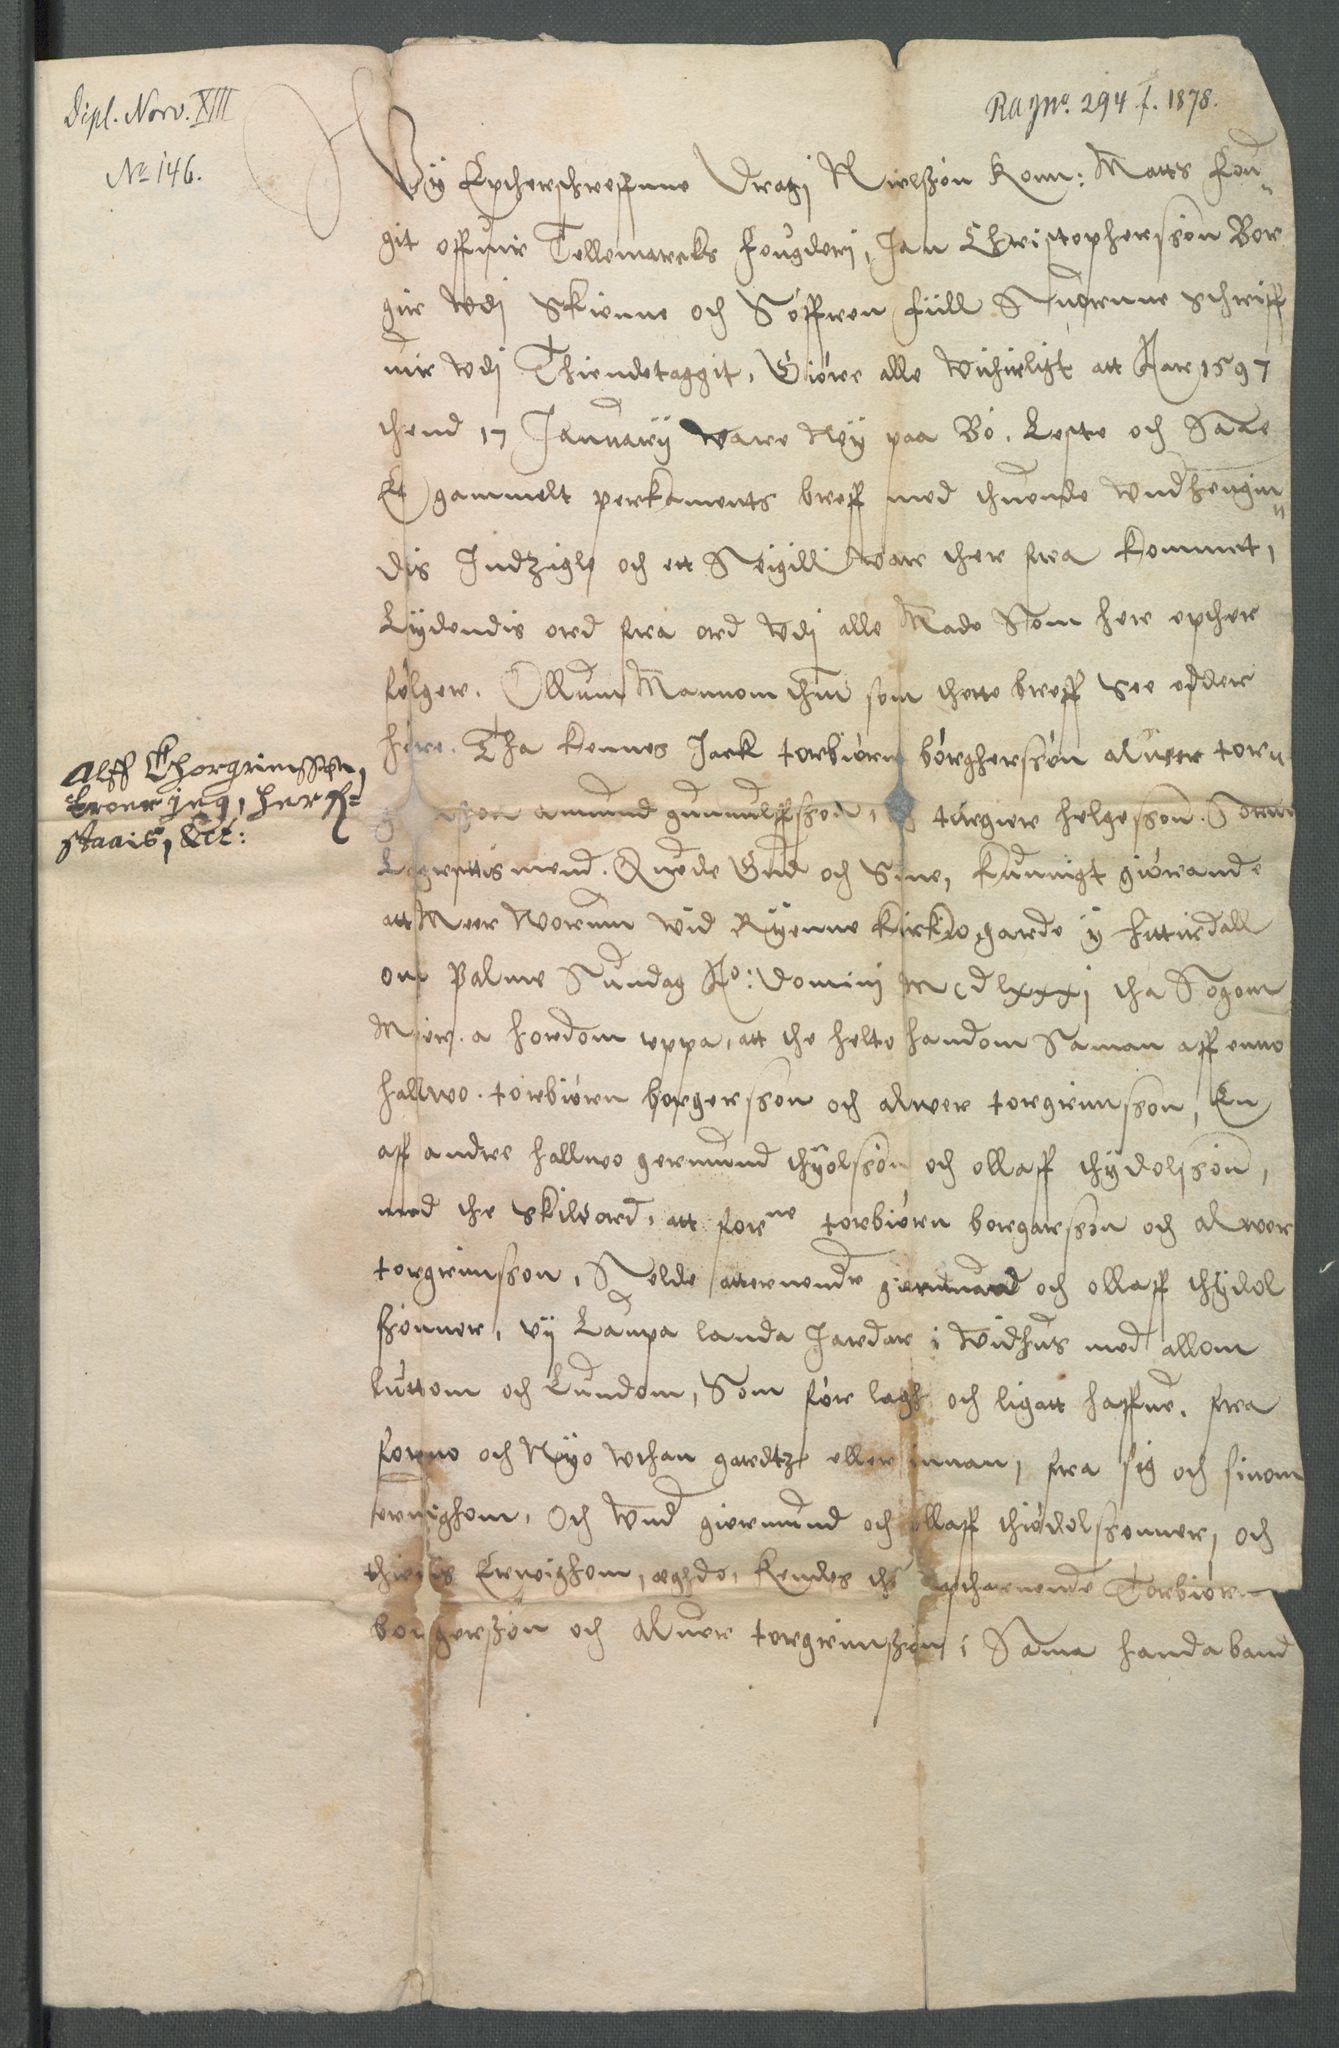 Dipl. Norv. XIII
No 146.
RA Jno. 294 f. 1878.
Wÿ Epthersschreffnne Dragj Nielsszön Konn: Matts fou„
git offuir Tellemarcks fougderj, Jan Christophersszön Bor
gir vdj Skienne och Söffren fiill Suornne schriff
uir vdj Thiendelaggit, Giöre alle vitirligt att Aare 1597
thend 17 Januarÿ vare Wÿ paa Bö. Leste och Saae
Et gammelt perkaments breff med thuende vndhengin„
dis Indzigle och ett Seigill var ther fra kommit,
Lÿdendis ord fra ord vdj alle Made Som her epther
følger. Ollum Mannom thm som thette breff see edder
höre. Tha kennes Jack torbiörn börghersson aluer torn
amund gunnulffsson, och targier helgesson. Sorne
Logrettis mend. Quede Gud och Sine, kunnigt giörande
att Meer Worum vid Rÿenne kirkio garde ÿ hitterdall
om Palme Sundag Ao: Domini Mcdlxxxj tha Sogom
Meer. a hordom uppa, att the helte handom Saman aff enno
hallwo. torbiörn borgersson och alwer torgrimsson, En
aff andre hallwo germund thÿolsson och ollaff thÿdolsson,
med the skilord, att forne torbiörn borgarsson och alwer
torgrimsson, Selde atternende giermund och ollaff thÿdol
ssonner, vÿ Laupa landa Jardar i Widhus med allom
luttom och Lundom, Som för lagh och ligatt haffue, fra
forno och Nÿo vthan gardtz eller innan, fra sig och sinom
erwighom, Och vnd giermund och ollaff thiödolssonner, och
thieris Erweighom, æghdo, kendes the epthernende Torbiörn
borgersson och aluer torgrimsson i Sama handaband
Alff Thorgrimssøn,
staais, &ct: